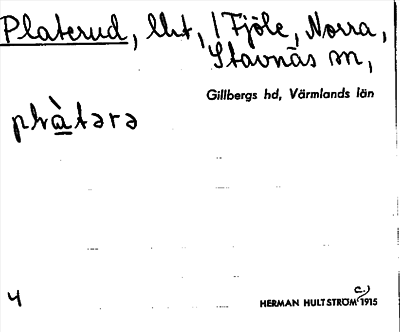 Platerud, lht, 1 Fjöle, Norra,
Stavnäs sn,
Gillbergs hd, Värmlands län
plàtərə
4
HERMAN HULTSTRÖM c.) 1915